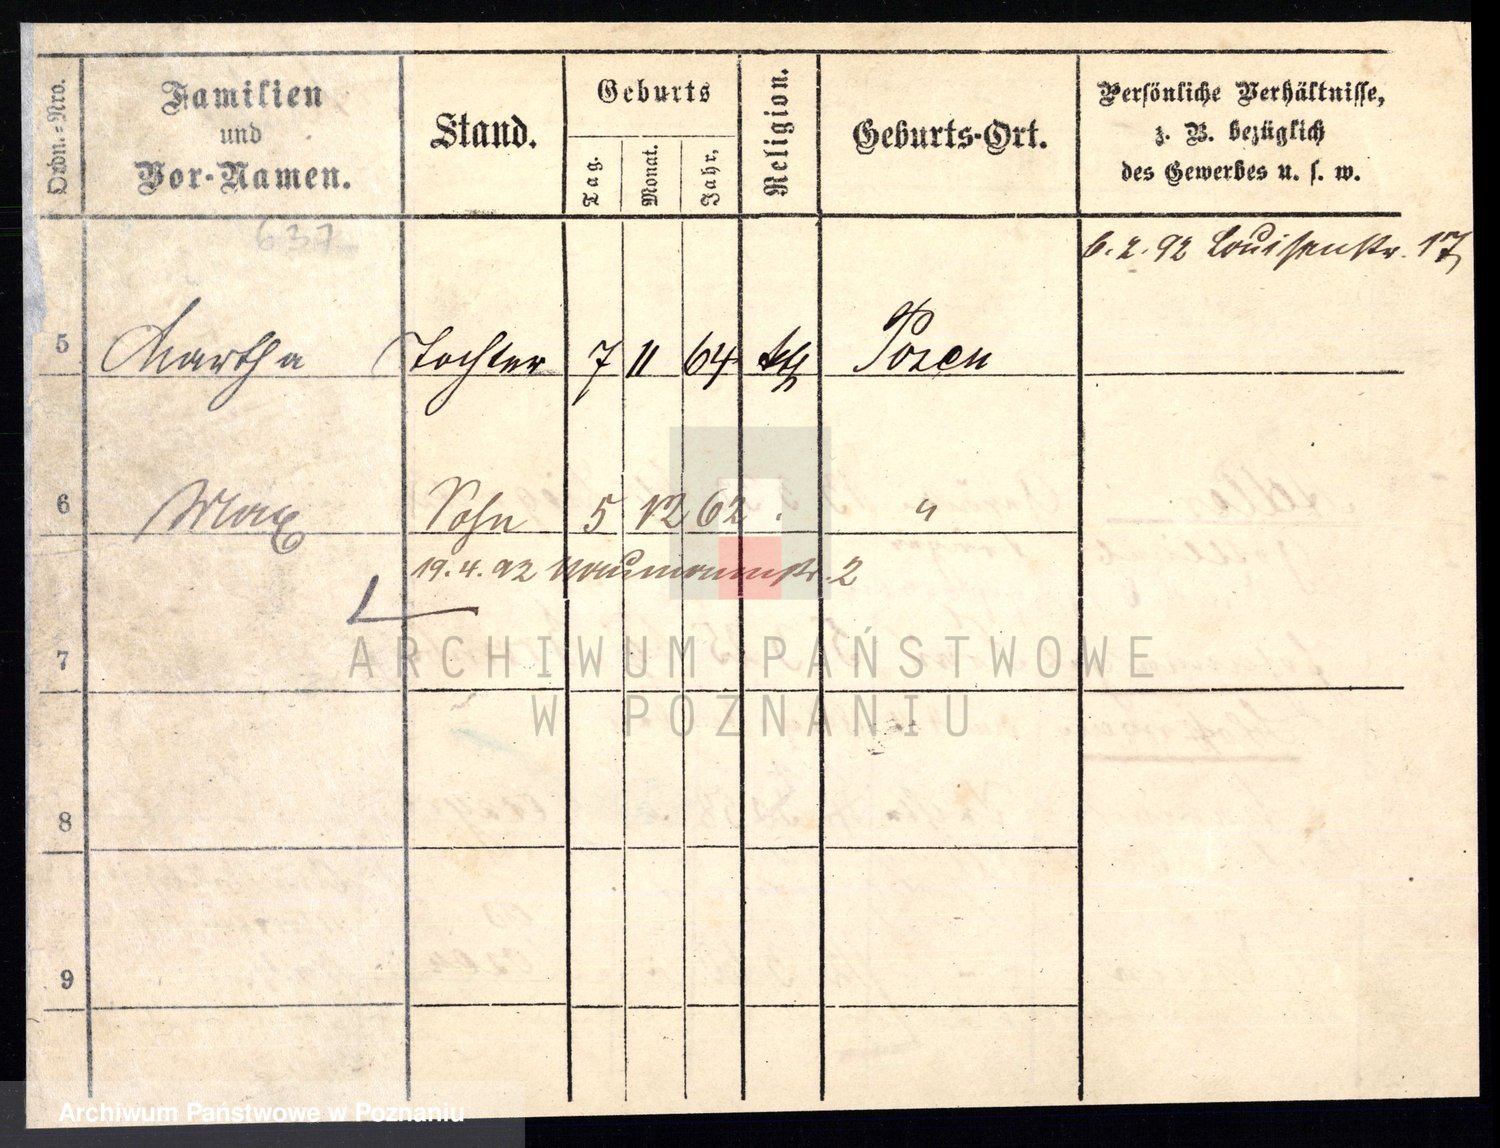 Ordn.-Nro.
Familien
und
Vor-Namen.
Stand.
Geburts
Tag.
Monat.
Jahr,
Religion.
Geburts-Ort.
Persönliche Verhältnisse,
z. B. bezüglich
des Gewerbes u. s. w.
637
6.2.92 Louisenstr. 17
5 Martha Tochter 7 11 64 kth Posen
6 Max Sohn 5 12 62 . "
19.4.92 Naumannstr. 2
7
ARCHIWUM PAŃSTWOWE
W POZNANIU
8
9
Archiwum Państwowe w Poznaniu